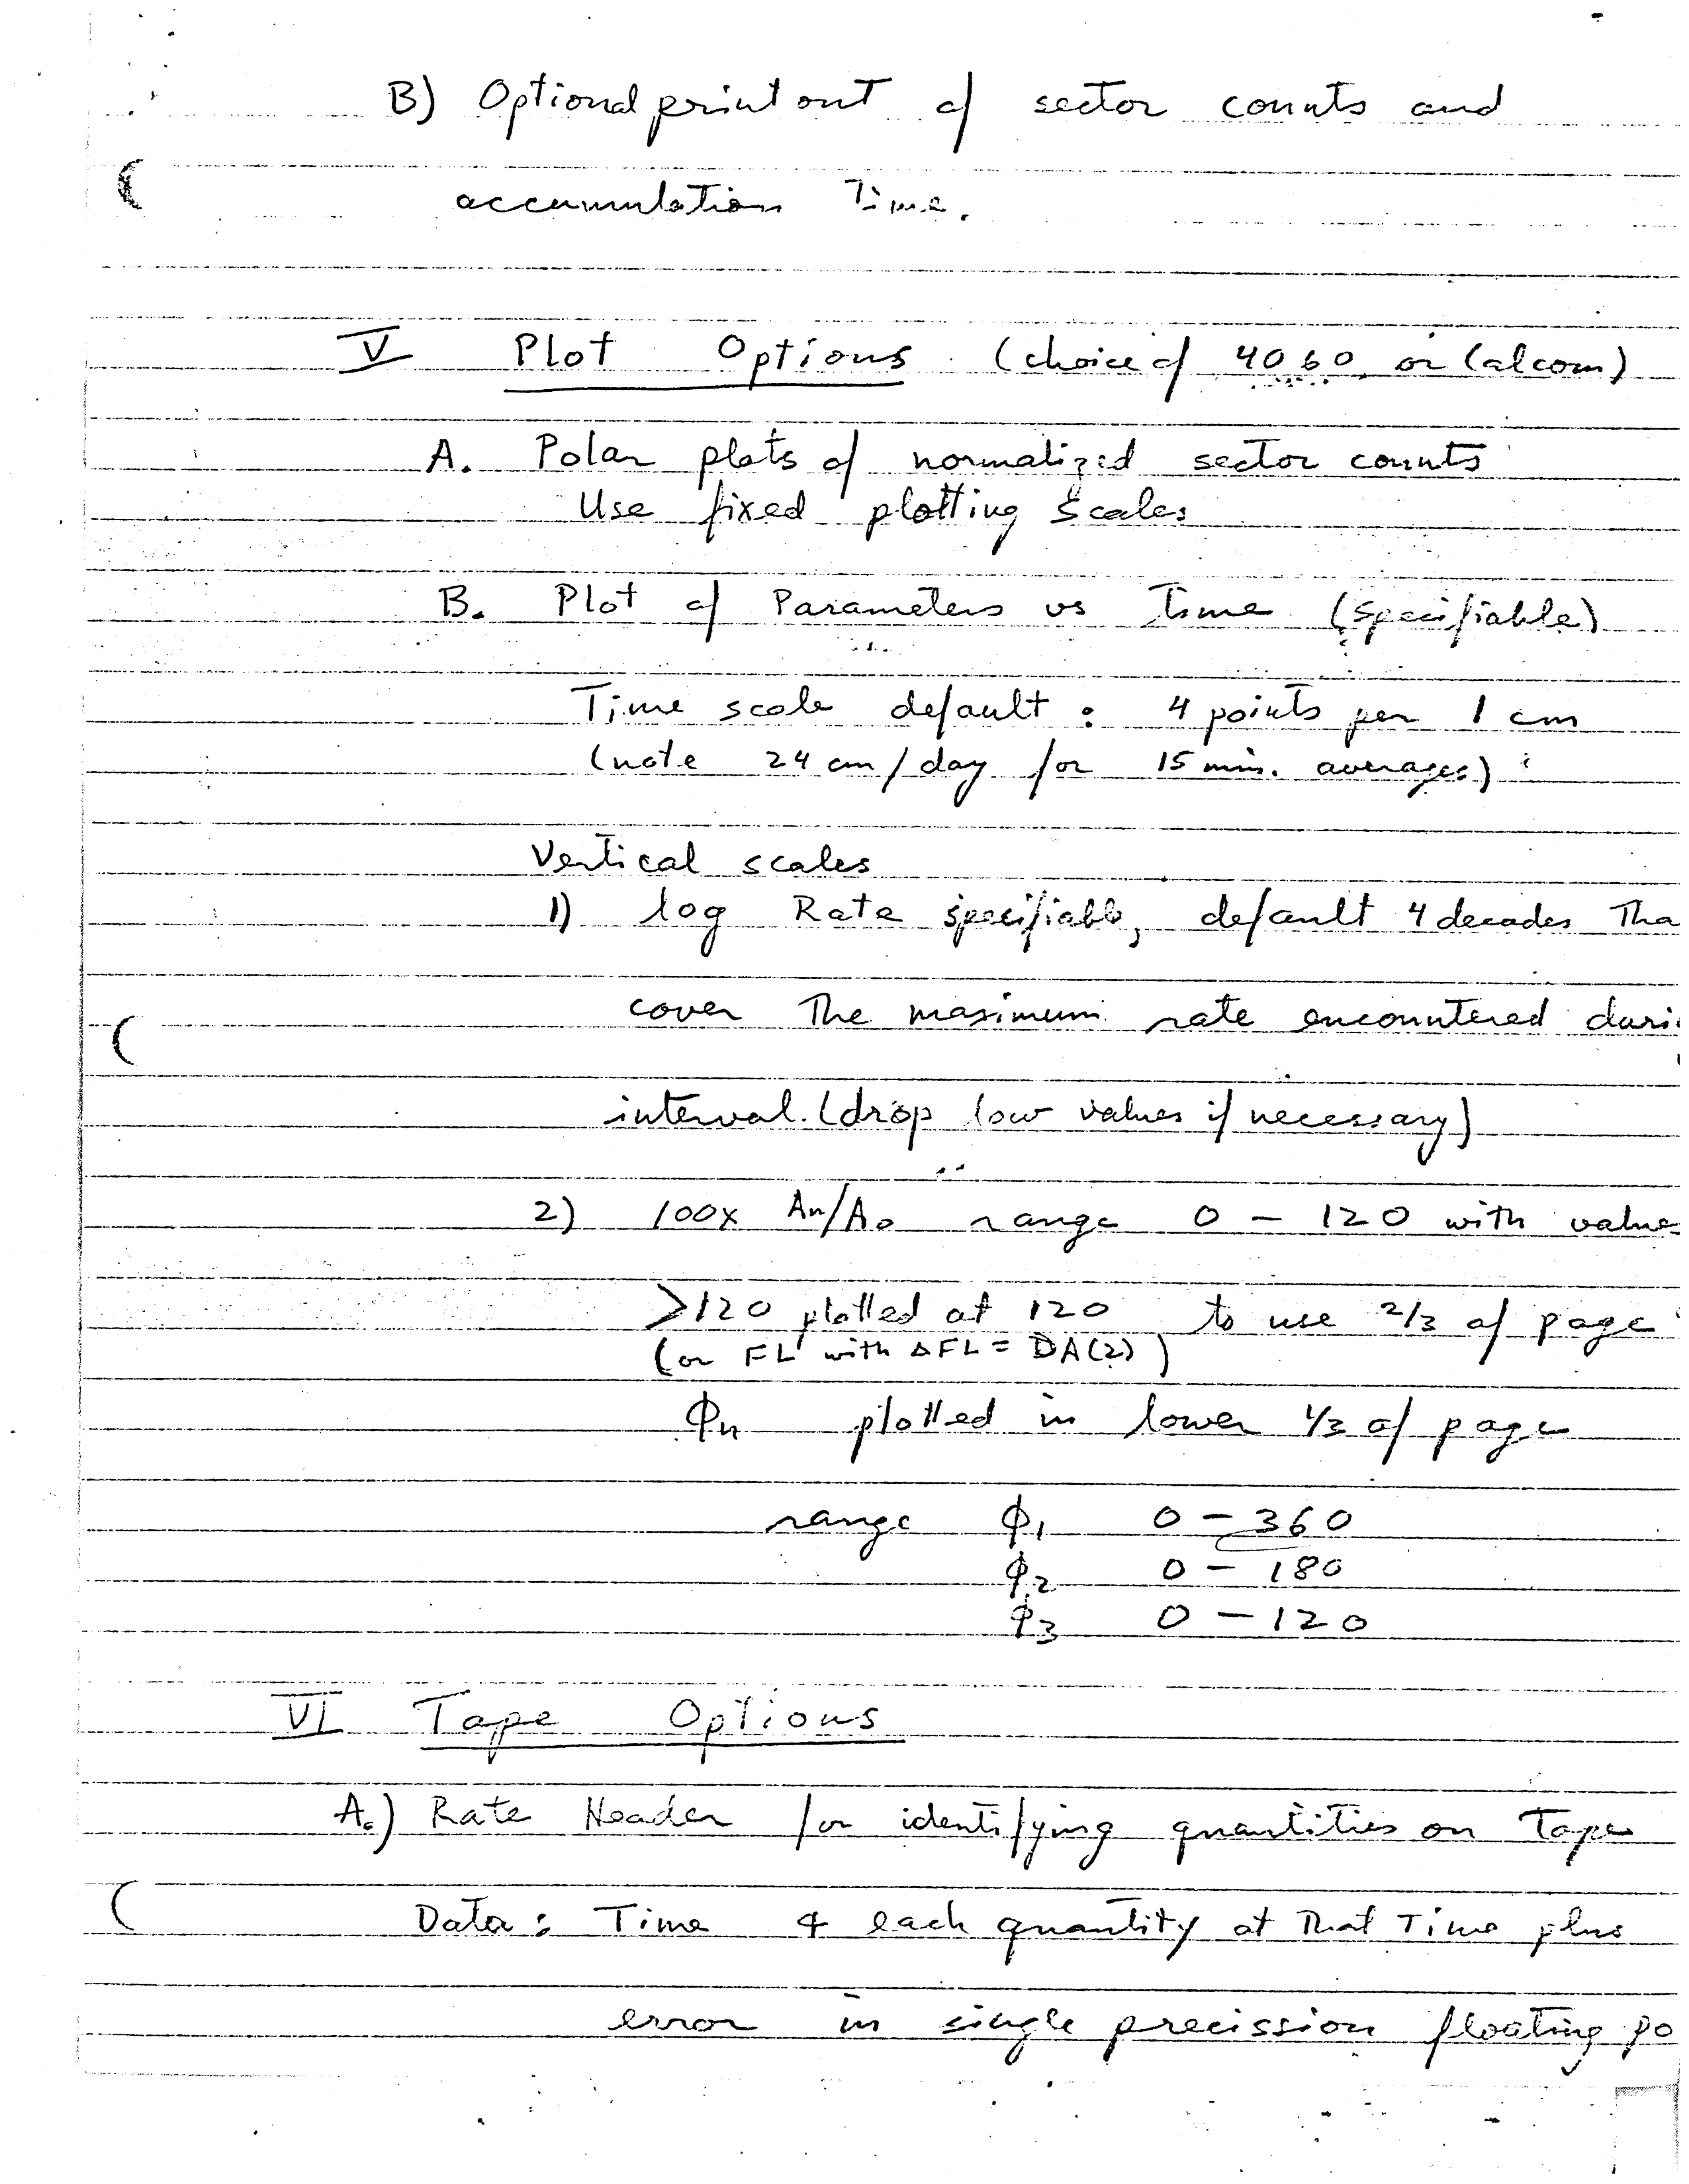 B) Optional print out of sector counts and
accumulation Time.
V Plot Options (choice of 4060 or Calcom)
A. Polar plots of normalized sector counts
Use fixed plotting scales
B. Plot of Parameters vs Time (specifiable)
Time scale default : 4 points per 1 cm
(note 24 cm/day for 15 min. averages)
Vertical scales
1) log Rate specifiable, default 4 decades Tha
cover The maximum rate encountered duri
interval. (drop low values if necessary)
2) 100x An/Ao range 0 - 120 with value
>120 plotted at 120 to use 2/3 of page
(or FL with ΔFL = DA(2))
Φn plotted in lower 1/3 of page
range φ1 0 - 360
φ2 0 - 180
φ3 0 - 120
VI Tape Options
A.) Rate Header for identifying quantities on Tape
Data: Time & each quantity at That Time plus
error in single precission floating po